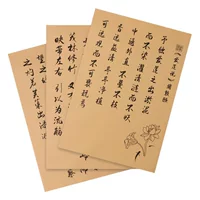 《爱莲说》周敦颐
予独爱莲之出淤泥
而不染濯清涟而不妖
中通外直不蔓不枝
香远益清亭亭净植
可远观而不可亵玩焉
茂林修竹
映带左右引以为流觞
之灼若芙蕖出渌